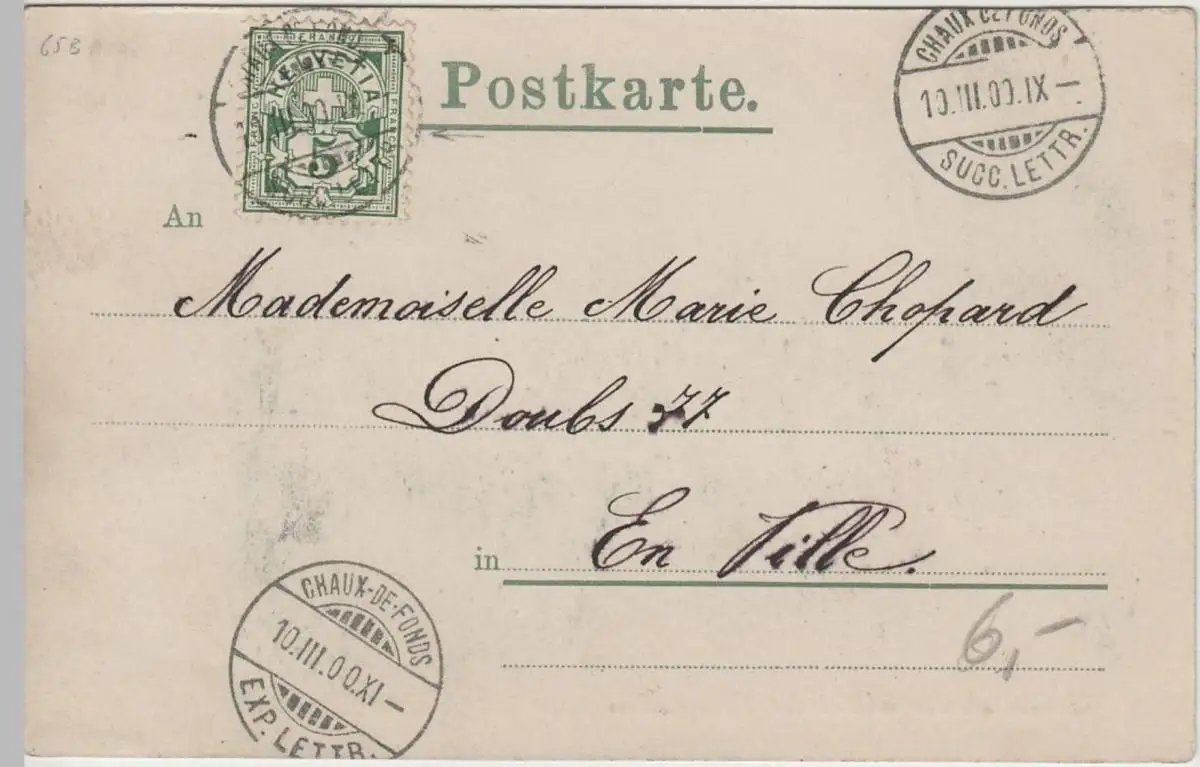 65B
HELVETIA
5
FRANCO
Postkarte.
CHAUX DE FONDS
10.III.00.IX —
SUCC. LETTR.
An
Mademoiselle Marie Chopard
Doubs 77
in En Ville.
CHAUX-DE-FONDS
10.III.00.XI —
EXP. LETTR.
6,-